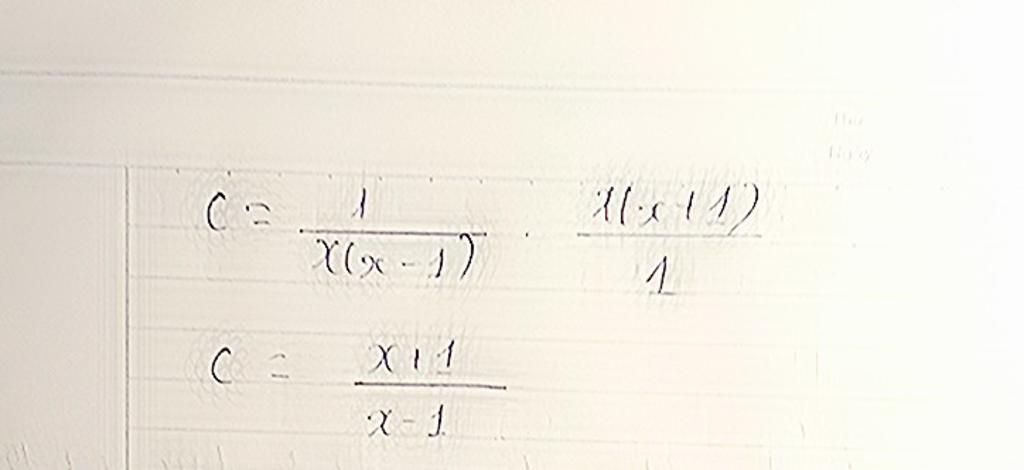 C = 1 / x(x - 1) · x(x + 1) / 1
C = x + 1 / x - 1